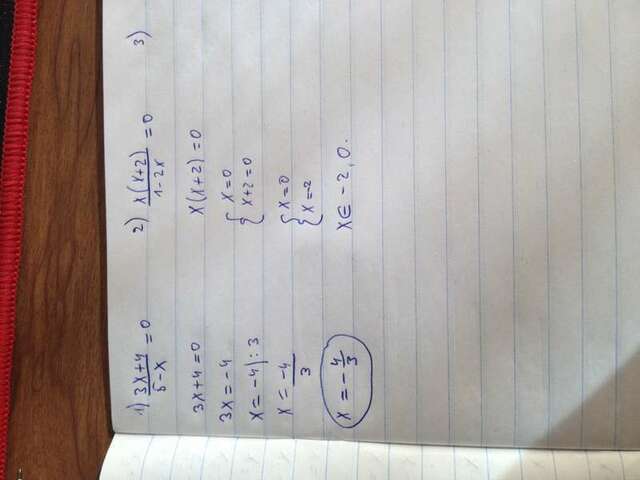 1) \frac{3x+4}{5-x} = 0
3x+4=0
3x = -4
x = -4|:3
x = \frac{-4}{3}
x = -\frac{4}{3}
2) \frac{x(x+2)}{1-2x} = 0
x(x+2) = 0
{ x=0
x+2=0
{ x=0
x=-2
x∈ -2, 0.
3)